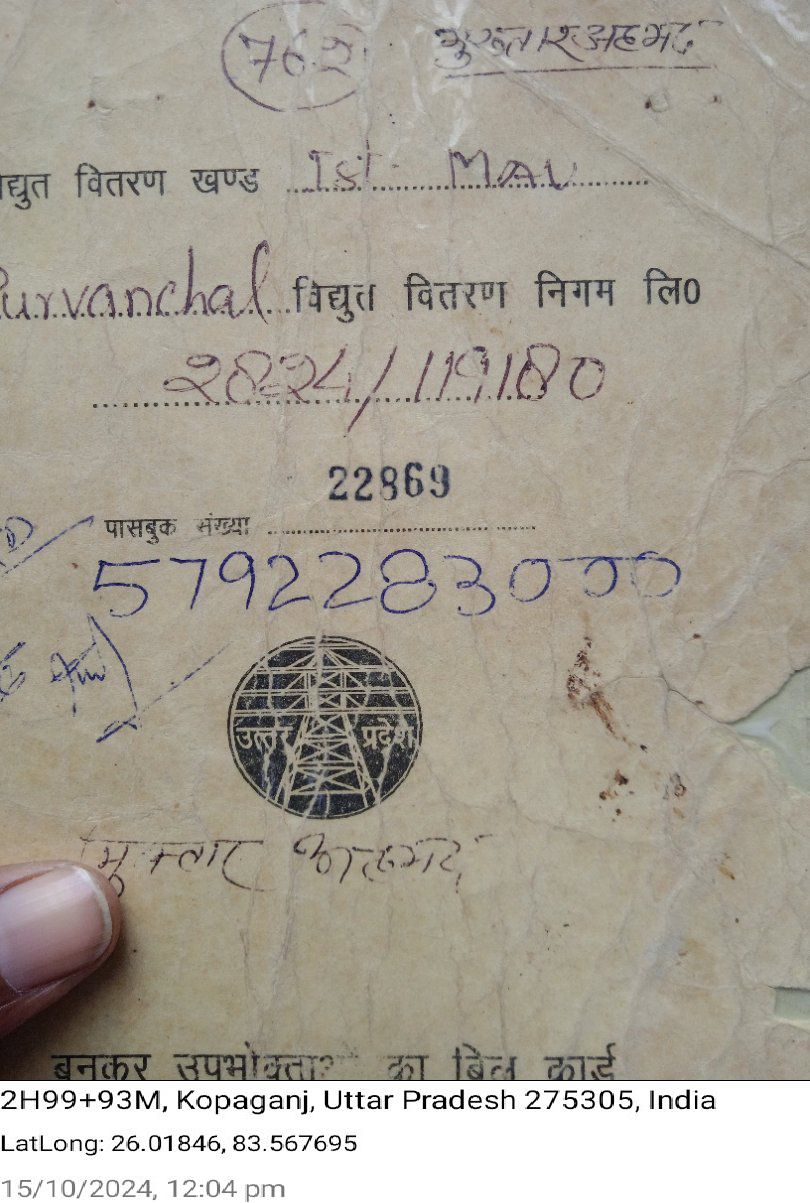 762 मुख्तार अहमद
द्युत वितरण खण्ड Ist MAU
Purvanchal विद्युत वितरण निगम लि0
2824/119180
22869
पासबुक संख्या
5792283000
उत्तर प्रदेश
मुख्तार अहमद
बुनकर उपभोक्ताओं का बिल कार्ड
2H99+93M, Kopaganj, Uttar Pradesh 275305, India
LatLong: 26.01846, 83.567695
15/10/2024, 12:04 pm